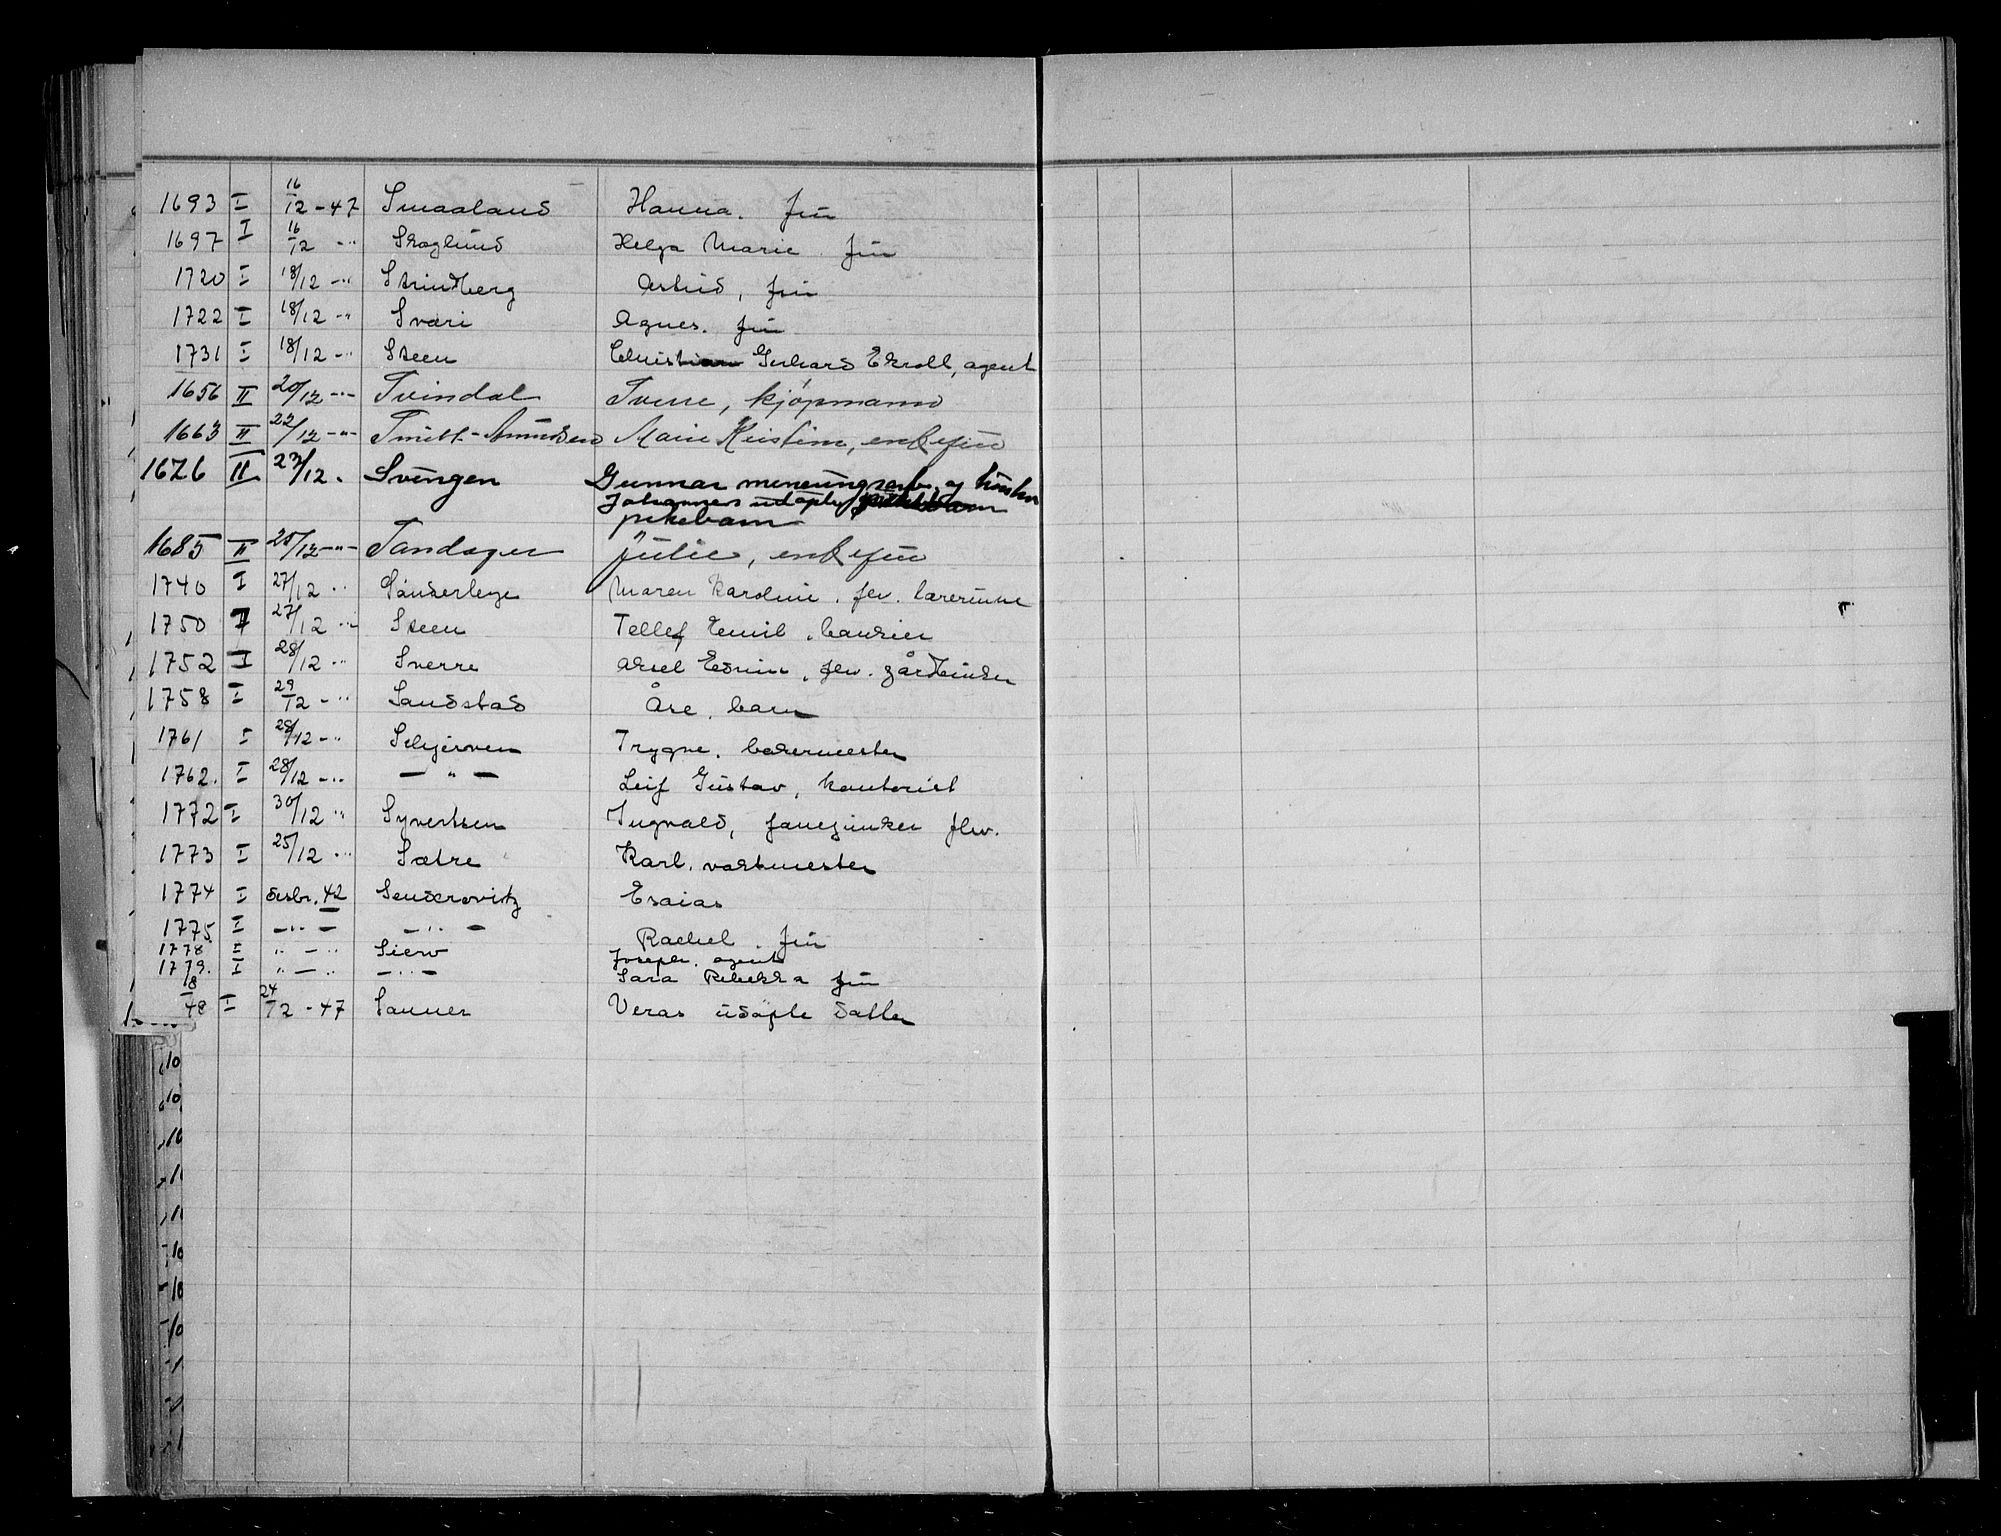 1693 I 16/12 - 47 Smaaland Hanna. frú
1697 I 16/12 -"- Skoglund Helga Marie. frú
1720 I 18/12 -"- Strindberg Astrid, frú
1722 I 18/12 -"- Sværi Agnes. frú
1731 I 18/12 -"- Steen Christian Gerhard Ekroll, agent
1656 II 20/12 -"- Tvindal Sverre, kjøpmann
1663 II 22/12 -"- Smitt-Amundsen Marie Kristine, enkefrú
1676 II 23/12. Svingen Gunnar og
Johannes udøpte
pikebarn
1685 II 25/12 -"- Tandager Julie, enkefrú
1740 I 27/12 -" Maren Karoline. fhv. lærerinne
1750 I 27/12 -" Steen Tellef Emil, bankier
1752 I 28/12 -" Sverre Aksel Edvin, fhv. gårdbruker
1758 I 29/12 -" Sandstad Åse. barn
1761 I 28/12 -" Schjerven Trygve. bakermester
1762. I 28/12 -" — " — Leif Gustav, kontorist
1772 I 30/12 " Syvertsen Ingvald, fhv.
1773 I 25/12 -" Sætre Karl. vaktmester
1774 I desbr. 42 Senderovitz Esaias
1775 I -"- -"- Rachel. frú
1778 I " - " Scierv Joseph. agent
1779. I " — " -"- Sara Rebekka frú
8/48 I 24/12 - 47 Sanner Veras udøpte datter